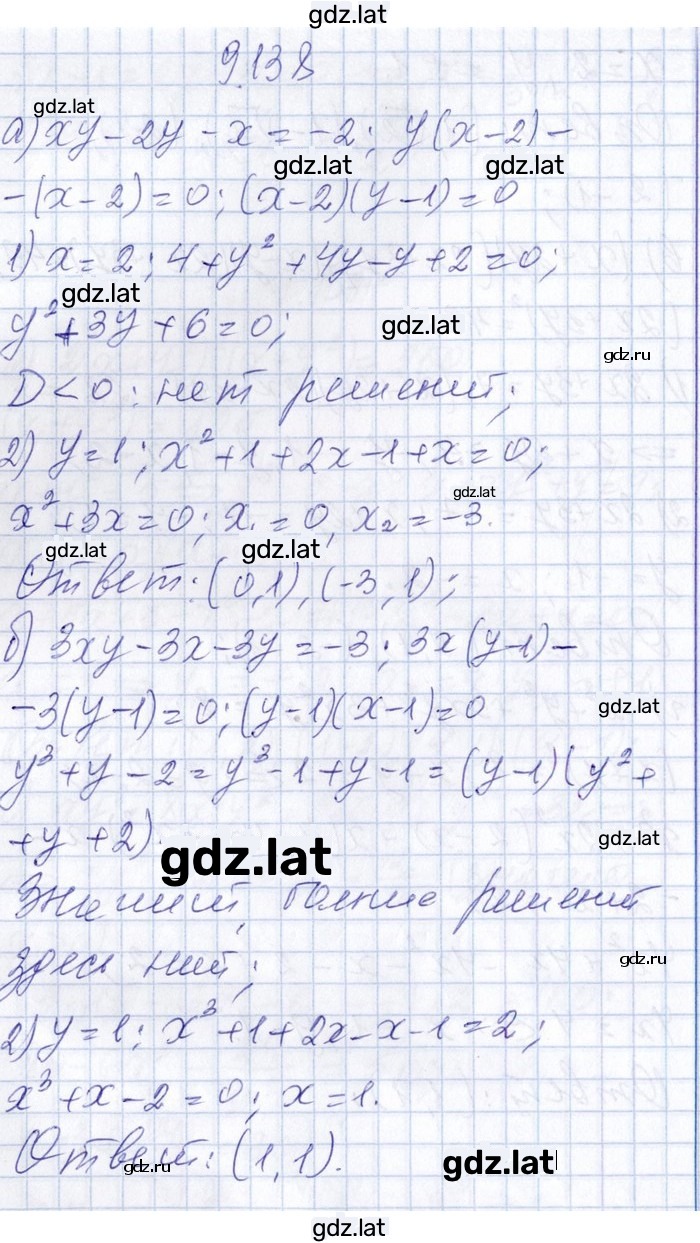 gdz.lat
9.138
gdz.lat
а) xy - 2y - x = -2; y(x-2) -
gdz.lat gdz.lat
- (x-2) = 0; (x-2)(y-1) = 0
1) x = 2; 4 + y² + 4y - y + 2 = 0;
gdz.lat
y² + 3y + 6 = 0;
gdz.lat
gdz.ru
D < 0: нет решений;
2) y = 1; x² + 1 + 2x - 1 + x = 0;
gdz.lat
x² + 3x = 0; x₁ = 0, x₂ = -3.
gdz.lat gdz.lat
Ответ: (0,1), (-3,1);
б) 3xy - 3x - 3y = -3; 3x(y-1) -
- 3(y-1) = 0; (y-1)(x-1) = 0
gdz.lat
y³ + y - 2 = y³ - 1 + y - 1 = (y-1)(y² +
+ y + 2).
gdz.lat
gdz.lat
решений
здесь
gdz.ru
2) y = 1; x³ + 1 + 2x - x - 1 = 2;
x³ + x - 2 = 0; x = 1.
Ответ: (1,1).
gdz.ru
gdz.lat
gdz.lat